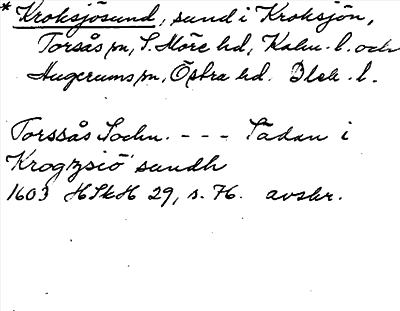 * Kroksjösund, sund i Kroksjön,
Torsås sn, S. Möre hd, Kalm. l. och
Hugerums sn, Östra hd. Blek. l.
Torssås Sochn. - - - Sädan i
Krogzsiö sundh
1603 HSkH 29, s. 76. avskr.